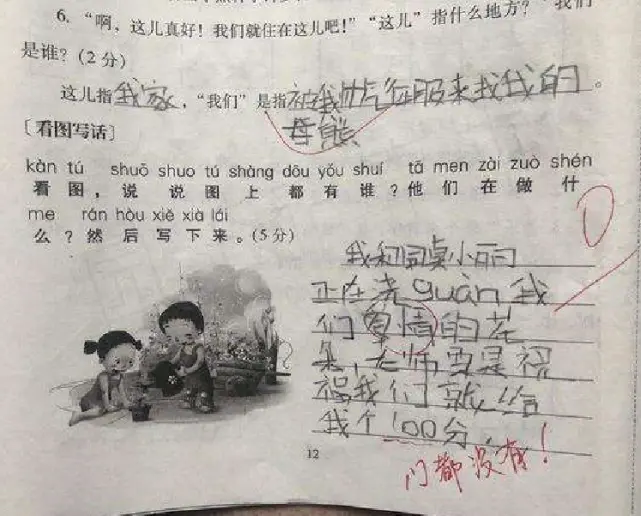 6. “啊，这儿真好！我们就住在这儿吧！”“这儿”指什么地方？“我们
是谁？(2分)
这儿指我家，“我们”是指被我帅气征服来找我的
母熊。
[看图写话]
kàn tú shuō shuo tú shàng dōu yǒu shuí tā men zài zuò shén
看图，说说图上都有谁？他们在做什
me rán hòu xiě xià lái
么？然后写下来。(5分)
0
我和同桌小丽
正在浇guàn我
们爱情的花
朵，老师要是祝
福我们就给
我个100分，
12
门都没有！